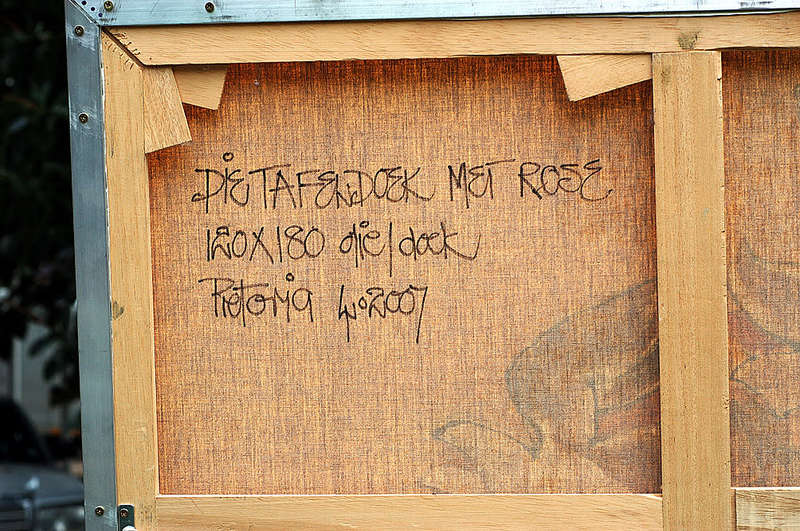 DIE TAFELDOEK MET ROSE
120X180 olie/doek
Pretoria 4.2007